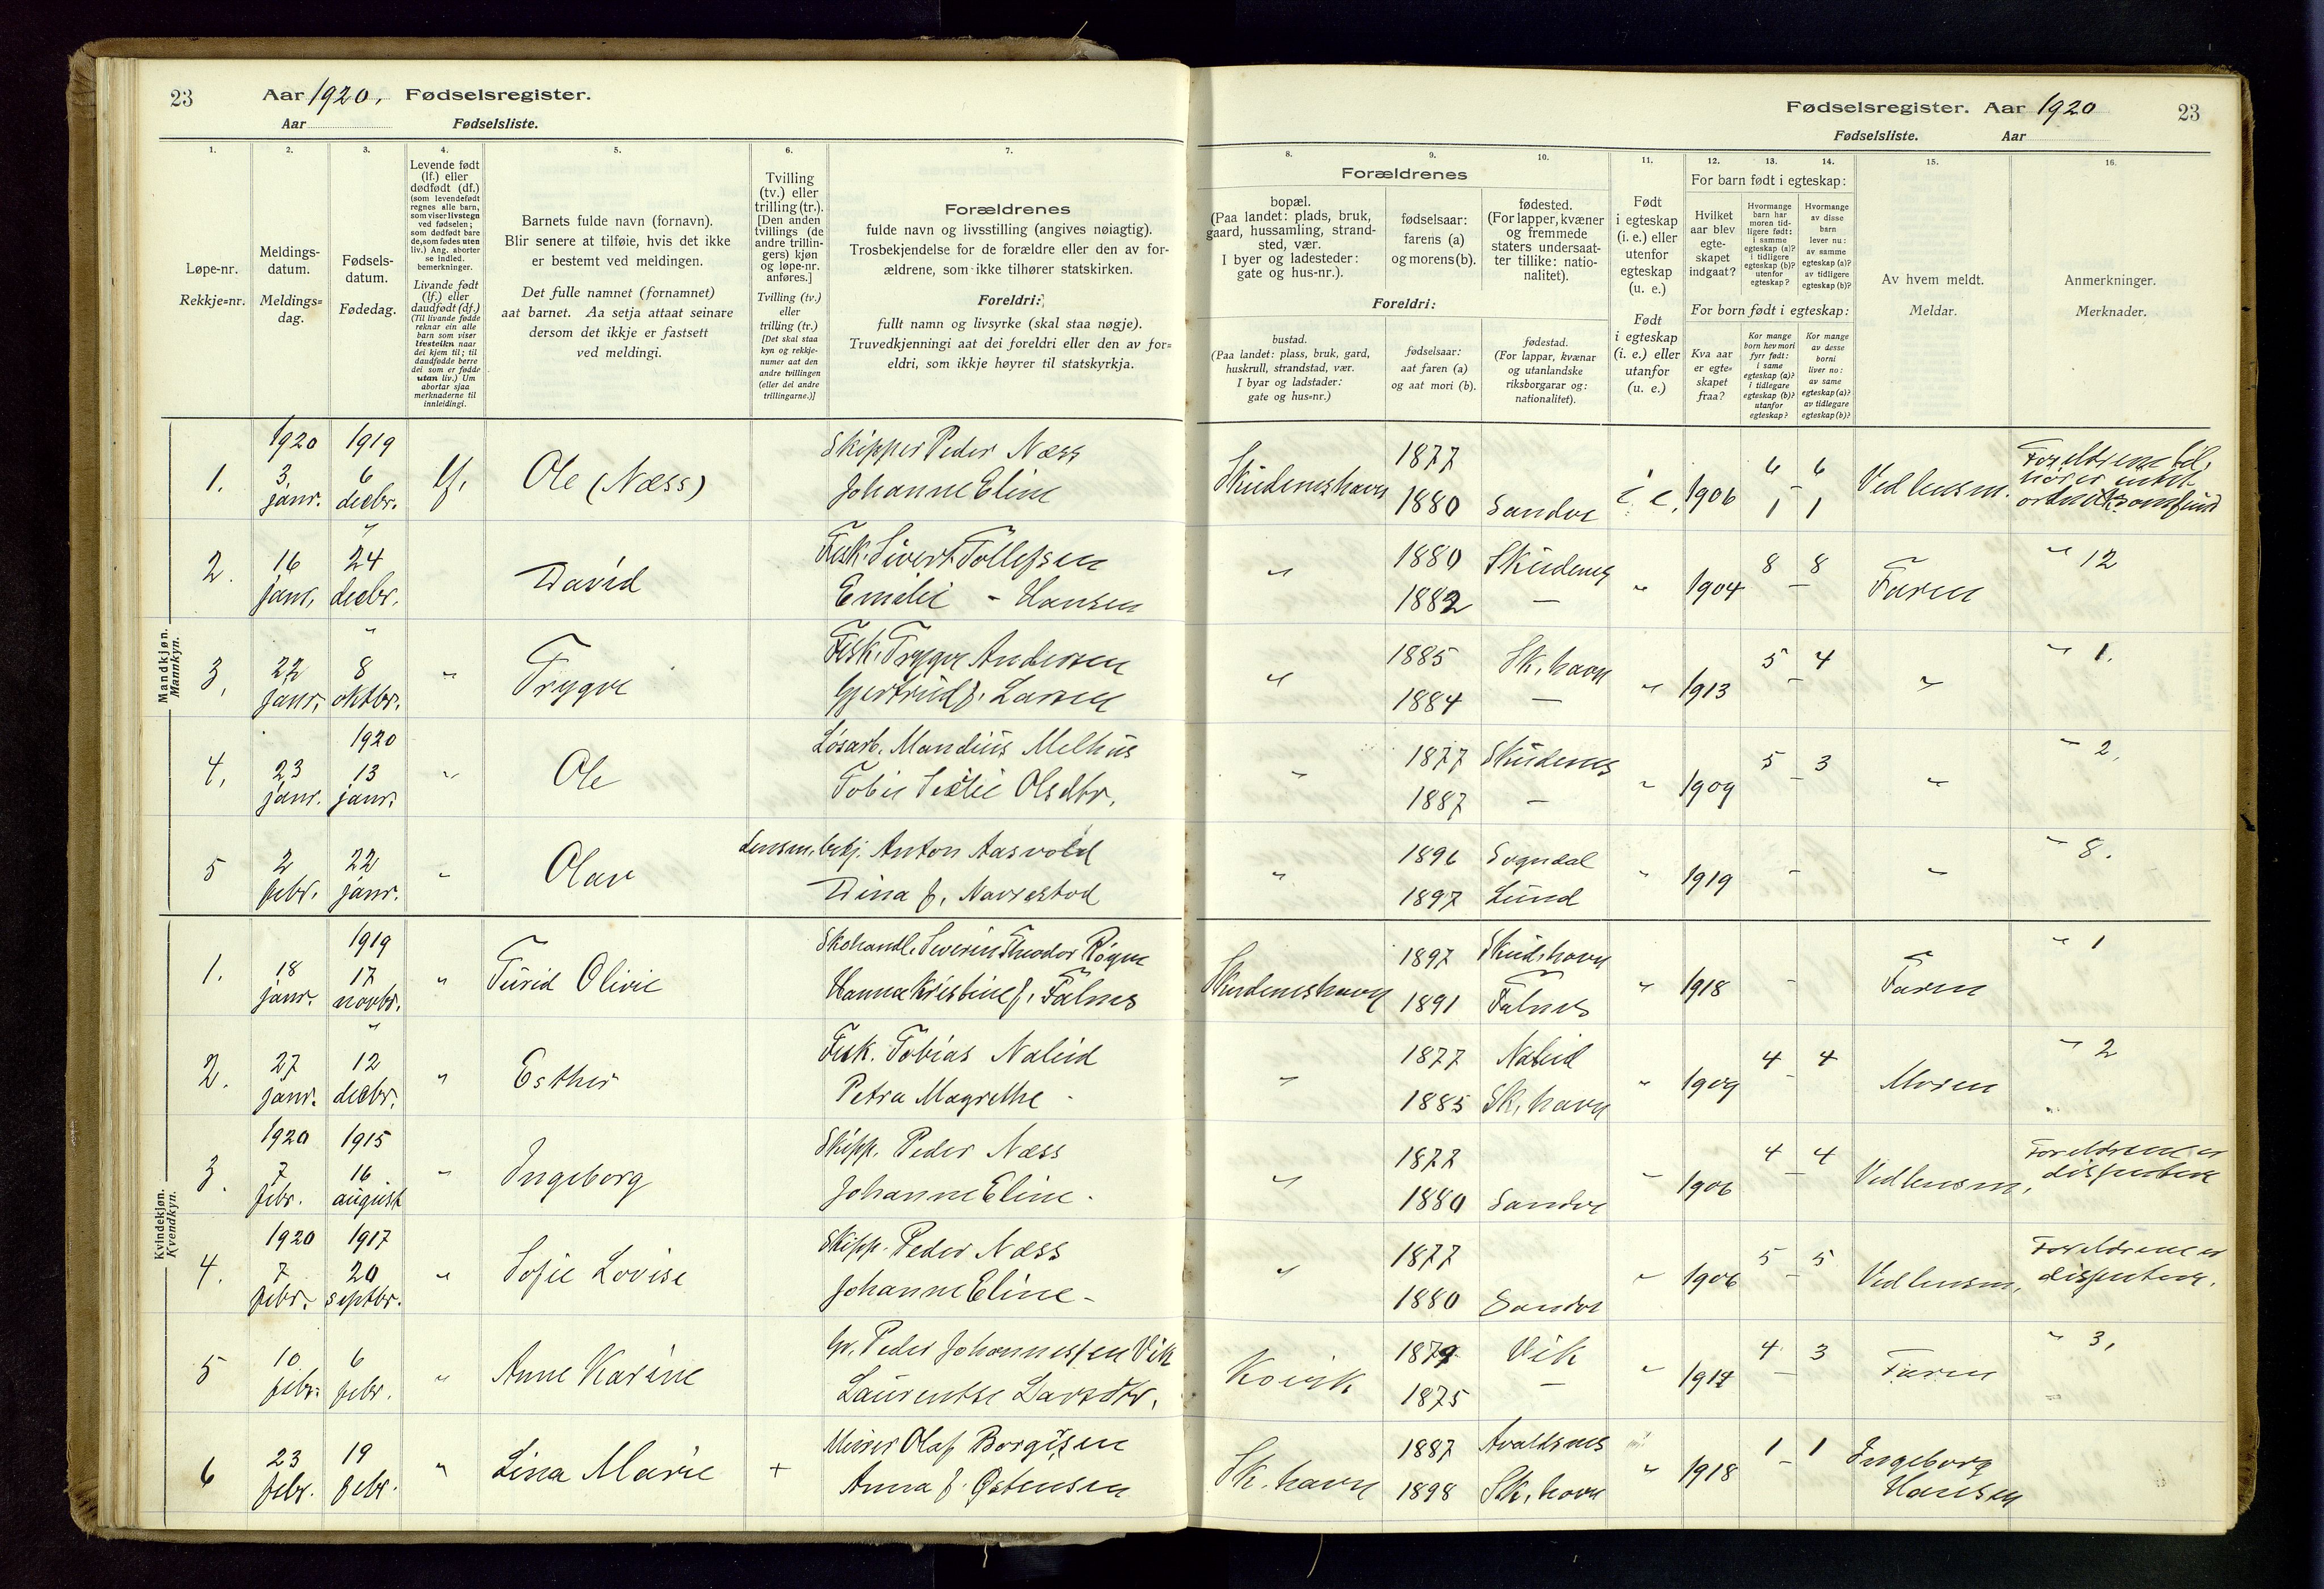 23 Aar 1920. Fødselsregister.
Aar Fødselsliste.
Fødselsregister. Aar 1920 23
Fødselsliste. Aar
1. 2. 3. 4. 5. 6. 7. 8. 9. 10. 11. 12. 13. 14. 15. 16.
Løpe-nr.
Rekkje=nr.
Meldings-
datum.
Meldings=
dag.
Fødsels-
datum.
Fødedag.
Levende født
(lf.) eller
dødfødt (df.)
(som levendefødt
regnes alle barn,
som viser livstegn
ved fødselen;
som dødfødt bare
de, som fødes uten
liv.) Ang. aborter
se indled.
bemerkninger.
Livande født
(lf.) eller
daudfødt (df.)
(Til livande fødde
reknar ein alle
barn som viser
livsteikn naar
dei kjem til; til
daudfødde berre
dei som er fødde
utan liv.) Um
abortar sjaa
merknaderne til
innleidingi.
Barnets fulde navn (fornavn).
Blir senere at tilføie, hvis det ikke
er bestemt ved meldingen.
Det fulle namnet (fornamnet)
aat barnet. Aa setja attaat seinare
dersom det ikkje er fastsett
ved meldingi.
Tvilling
(tv.) eller
trilling (tr.).
[Den anden
tvillings (de
andre trillin-
gers) kjøn
og løpe-nr.
anføres.]
Tvilling (tv.)
eller
trilling (tr.)
[Det skal staa
kyn og rekkje-
numer aat den
andre tvillingen
(eller dei andre
trillingarne.)]
Forældrenes
fulde navn og livsstilling (angives nøiagtig).
Trosbekjendelse for de forældre eller den av for-
ældrene, som ikke tilhører statskirken.
Foreldri:
fullt namn og livsyrke (skal staa nøgje).
Truvedkjenningi aat dei foreldri eller den av for=
eldri, som ikkje høyrer til statskyrkja.
Forældrenes
bopæl.
(Paa landet: plads, bruk,
gaard, hussamling, strand-
sted, vær.
I byer og ladesteder:
gate og hus-nr.).
fødselsaar:
farens (a)
og morens (b).
fødested.
(For lapper, kvæner
og fremmede
staters undersaat-
ter tillike: natio-
nalitet).
Foreldri:
bustad.
(Paa landet: plass, bruk, gard,
huskrull, strandstad, vær.
I byar og ladstader:
gate og hus=nr.)
fødselsaar:
aat faren (a)
og aat mori (b).
fødestad.
(For lappar, kvænar
og utanlandske
riksborgarar og:
nationalitet).
Født
i egteskap
(i. e.) eller
utenfor
egteskap
(u. e.)
Født
i egteskap
(i. e.) eller
utanfor
(u. e.)
For barn født i egteskap:
Hvilket
aar blev
egte-
skapet
indgaat?
Hvormange
barn har
moren tid-
ligere født:
i samme
egteskap (a)?
i tidligere
egteskap (b)?
utenfor
egteskap?
Hvormange
av disse
barn
lever nu:
av samme
egteskap (a)?
av tidligere
egteskap (b)?
For born født i egteskap:
Kva aar
er egte=
skapet
fraa?
Kor mange
born hev mori
fyrr født:
i same
egteskap (a)?
i tidlegare
egteskap (b)?
utanfor
egteskap?
Kor mange
av desse
borni
liver no:
av same
egteskap (a)?
av tidlegare
egteskap (b)?
Av hvem meldt.
Meldar.
Anmerkninger.
Merknader.
Mandkjøn.
Mannkyn.
1920 1919 Skipper Peder Næss 1877 6 6
1. 3. janr. 6 decbr. lf. Ole (Næss) Johanne Eline Skudeneshavn 1880 Sandve i. e. 1906 1 - 1 Ved lensm.
2. 16 janr. 24 decbr. David Fisk. Sivert Tollefsen 1880 Skudenes 8 8 " 12
Emilie - Hansen " 1882 — " 1904 - Faren
3. 22 janr. 8 oktbr. " Trygve Fisk. Trygve Andersen 1885 Sk. havn 5 4 " 1.
Gjertrud f. Larsen " 1884 — " 1913 - "
1920 Løsarb. Mandius Melhus 1877 Skudenes 5 3 " 2.
4. 23 janr. 13 janr. " Ole Olsdtr. " 1887 — " 1909 - "
5 2 febr. 22 janr. " Olav Anton Aasvold 1896 Sogndal " 8.
Dina f. Navrestad " 1897 Lund " 1919 - "
Kvindekjøn.
Kvendkyn.
1919 Skohandl. Severin Theodor Røgne 1897 Skud.havn " 1
1. 18 janr. 17 novbr. " Turid Olivie Hanna Kristine f. Falnes Skudeneshavn 1891 Falnes " 1918 - Faren
2. 27 janr. 12 decbr. " Esther Fisk. Tobias Naleid 1877 Naleid 4 4 " 2
Petra Magrethe - " 1885 Sk. havn " 1909 - Moren
1920 1915 Skipp. Peder Næss 1877 4 4 Foreldrene er
3. 7 febr. 16 august " Ingeborg Johanne Eline - " 1880 Sandve " 1906 - Ved lensm.
1920 1917 Skipp. Peder Næss 1877 5 5 Foreldrene er
4. 7 febr. 20 septbr. " Sofie Lovise Johanne Eline - " 1880 Sandve " 1906 - Ved lensm.
5 10 febr. 6 febr. " Anne Karine Gr. Peder Johannessen Vik 1879 Vik 4 3 " 3.
Laurentse Larsdtr. 1875 — " - Faren
6 23 febr. 19 febr. " Lina Marie + Murer Olaf Borgisen 1887 Avaldsnes 1 - 1 Ingeborg
Anna f. Sk. havn 1898 Sk. havn " 1918 Hansen